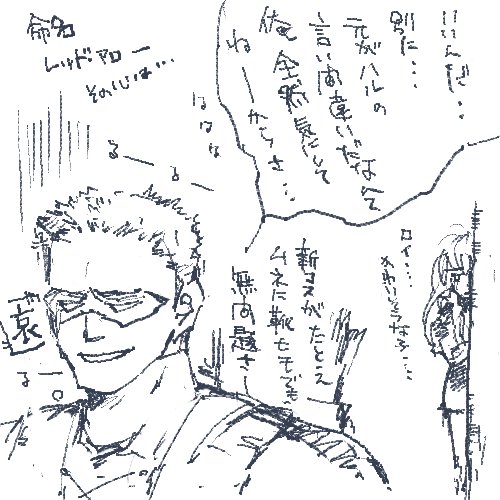 いいんだ…
別に…
元がハルの
言い間違いだなんて
俺、全然気にして
ねーからさ…
命名
レッド・アロー
そのじじは…
ははは
るー
るー
ロイ…
かわいそうな子…
新コスがたとえ
ムネに靴ヒモでも
無問題さー
哀
るー。